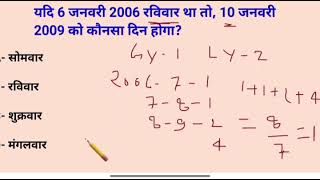 यदि 6 जनवरी 2006 रविवार था तो, 10 जनवरी
2009 को कौनसा दिन होगा?
- सोमवार
- रविवार
- शुक्रवार
- मंगलवार
Gy-1 Ly-2
2006-7-1
7-8-1
8-9-2
4
1+1+2+4
= 8/7 = 1